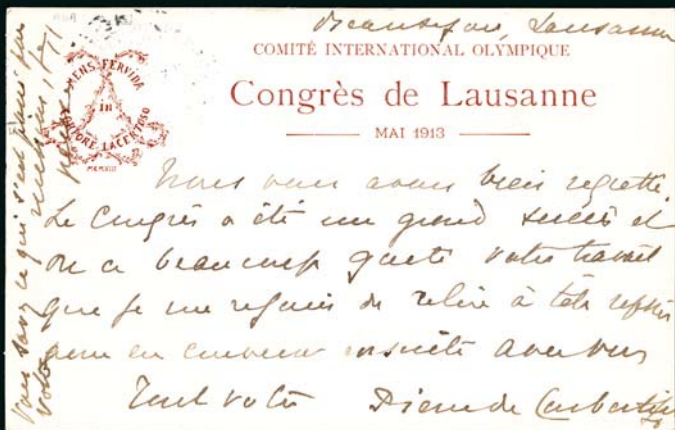 Beauséjour, Lausanne
COMITÉ INTERNATIONAL OLYMPIQUE
Congrès de Lausanne
MAI 1913
MENS FERVIDA
in
CORPORE LACERTOSO
MCMXIII
Nous vous avons bien regretté.
Le Congrès a été un grand succès et
on a beaucoup goûté votre travail
que je me réjouis de relire à tête
pour en causer ensuite avec vous
Tout votre Pierre de Coubertin
Vous savez ce qui s'est passé pour
votre